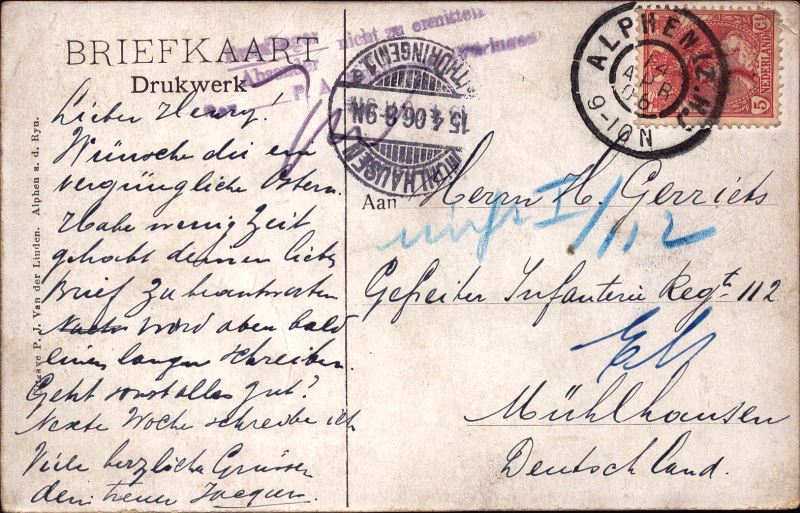 BRIEFKAART
Drukwerk
nicht zu ermitteln
Absender
Thüringen
P. A.
MÜHLHAUSEN
(THÜRINGEN) 1
15.4.06.8-9N
ALPHEN (Z.H.)
14 APR 06
9-10N
NEDERLAND
5 Ct
Uitgave P. J. Van der Linden. Alphen a. d. Ryn.
Lieber Henry!
Wünsche dir ein
vergüngliche Ostern.
Habe wenig Zeit
gehabt deinen lieben
Brief zu beantworten
word aben bald
einen langen schreiben.
Geht sonst alles gut?
Nexte Woche schreibe ich
Viele herzliche Grüssen
dein treuer
Aan
Herrn H. Gerriets
I/112
Gefreiter Infanterie Regt. 112
Els
Mühlhausen
Deutschland.